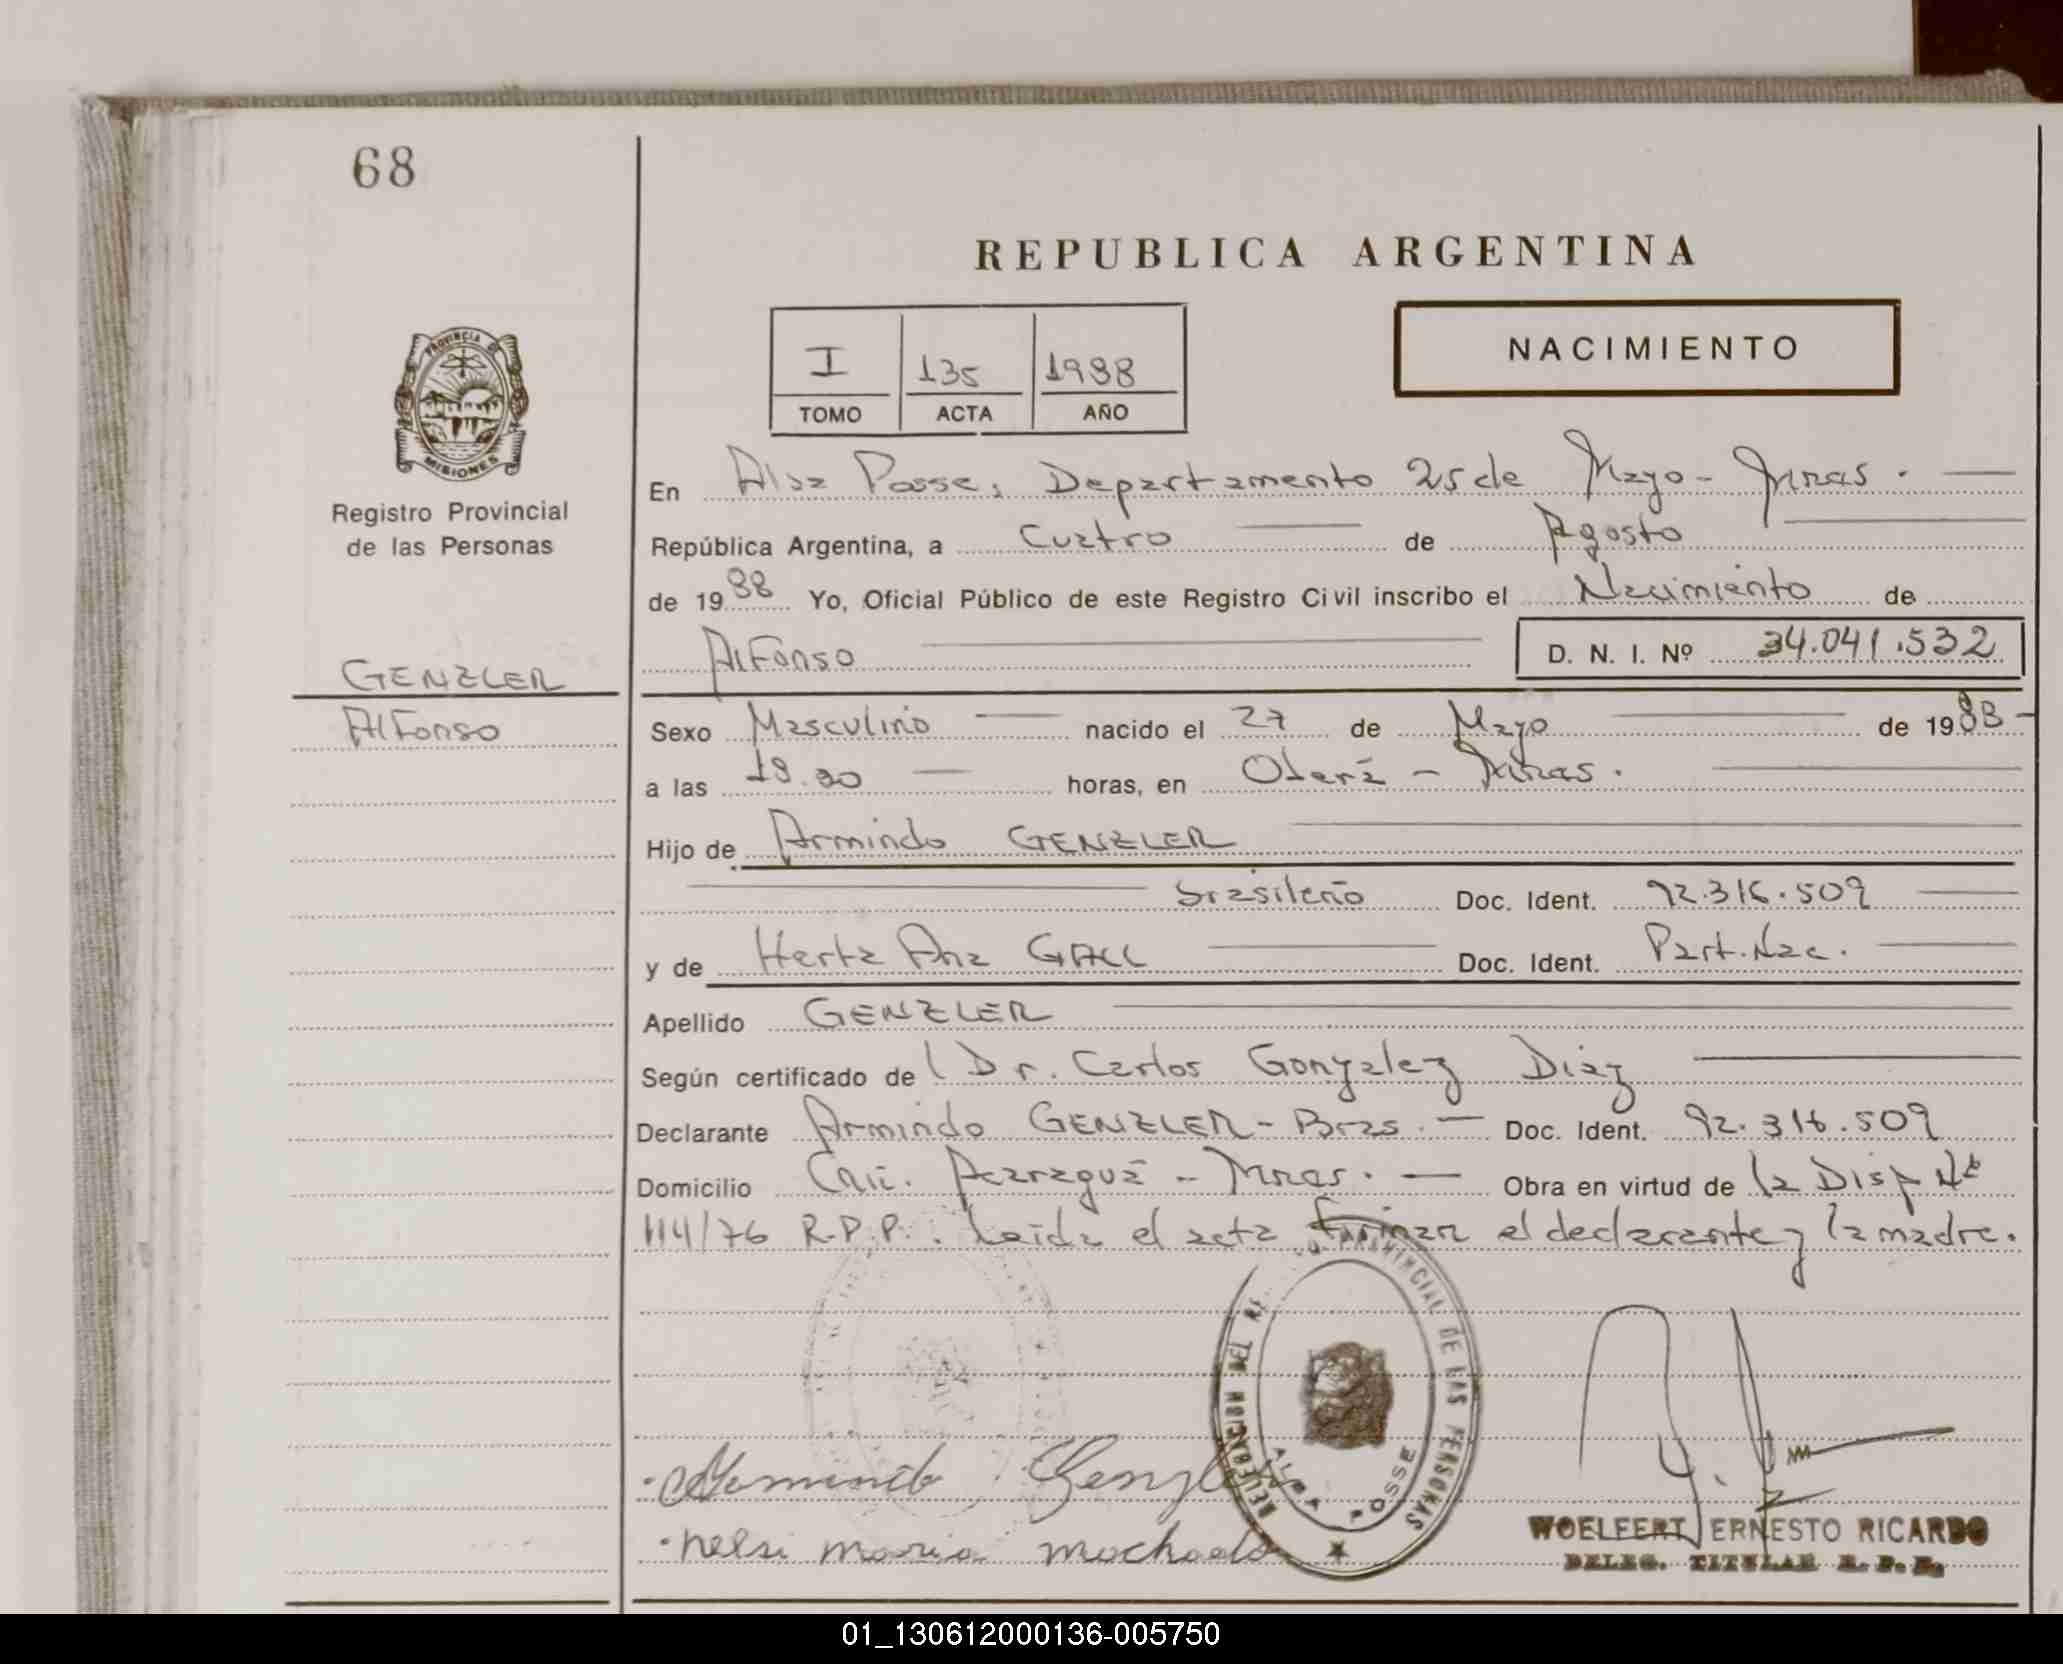 68
REPUBLICA ARGENTINA
I 135 1988
TOMO ACTA AÑO
NACIMIENTO
PROVINCIA DE
MISIONES
Registro Provincial
de las Personas
En Alba Posse, Departamento 25 de Mayo - Mnes. -
República Argentina, a Cuatro de Agosto
de 1988 Yo, Oficial Público de este Registro Civil inscribo el Nacimiento de
Alfonso D. N. I. Nº 34.041.532
GENZLER
Alfonso
Sexo Masculino nacido el 27 de Mayo de 1988 -
a las horas, en Oberá - Mnes.
Hijo de Armindo GENZLER
brasileño Doc. Ident. 92.316.509
y de Herta Ana GALL Doc. Ident. Part. Nac.
Apellido GENZLER
Según certificado del Dr. Carlos Gonzalez Diaz
Declarante Armindo GENZLER - Bras. - Doc. Ident. 92.316.509
Domicilio Acaragua - Mnes. - Obra en virtud de la Disp Nº
114/76 R.P.P. Leida el acta firman el declarante y la madre.
DELEGACION DEL PROVINCIAL DE LAS PERSONAS
ALBA POSSE
Genzler
nelsi maria machado
WOELFERT ERNESTO RICARDO
DELEG. TITULAR R. P. P.
01_130612000136-005750